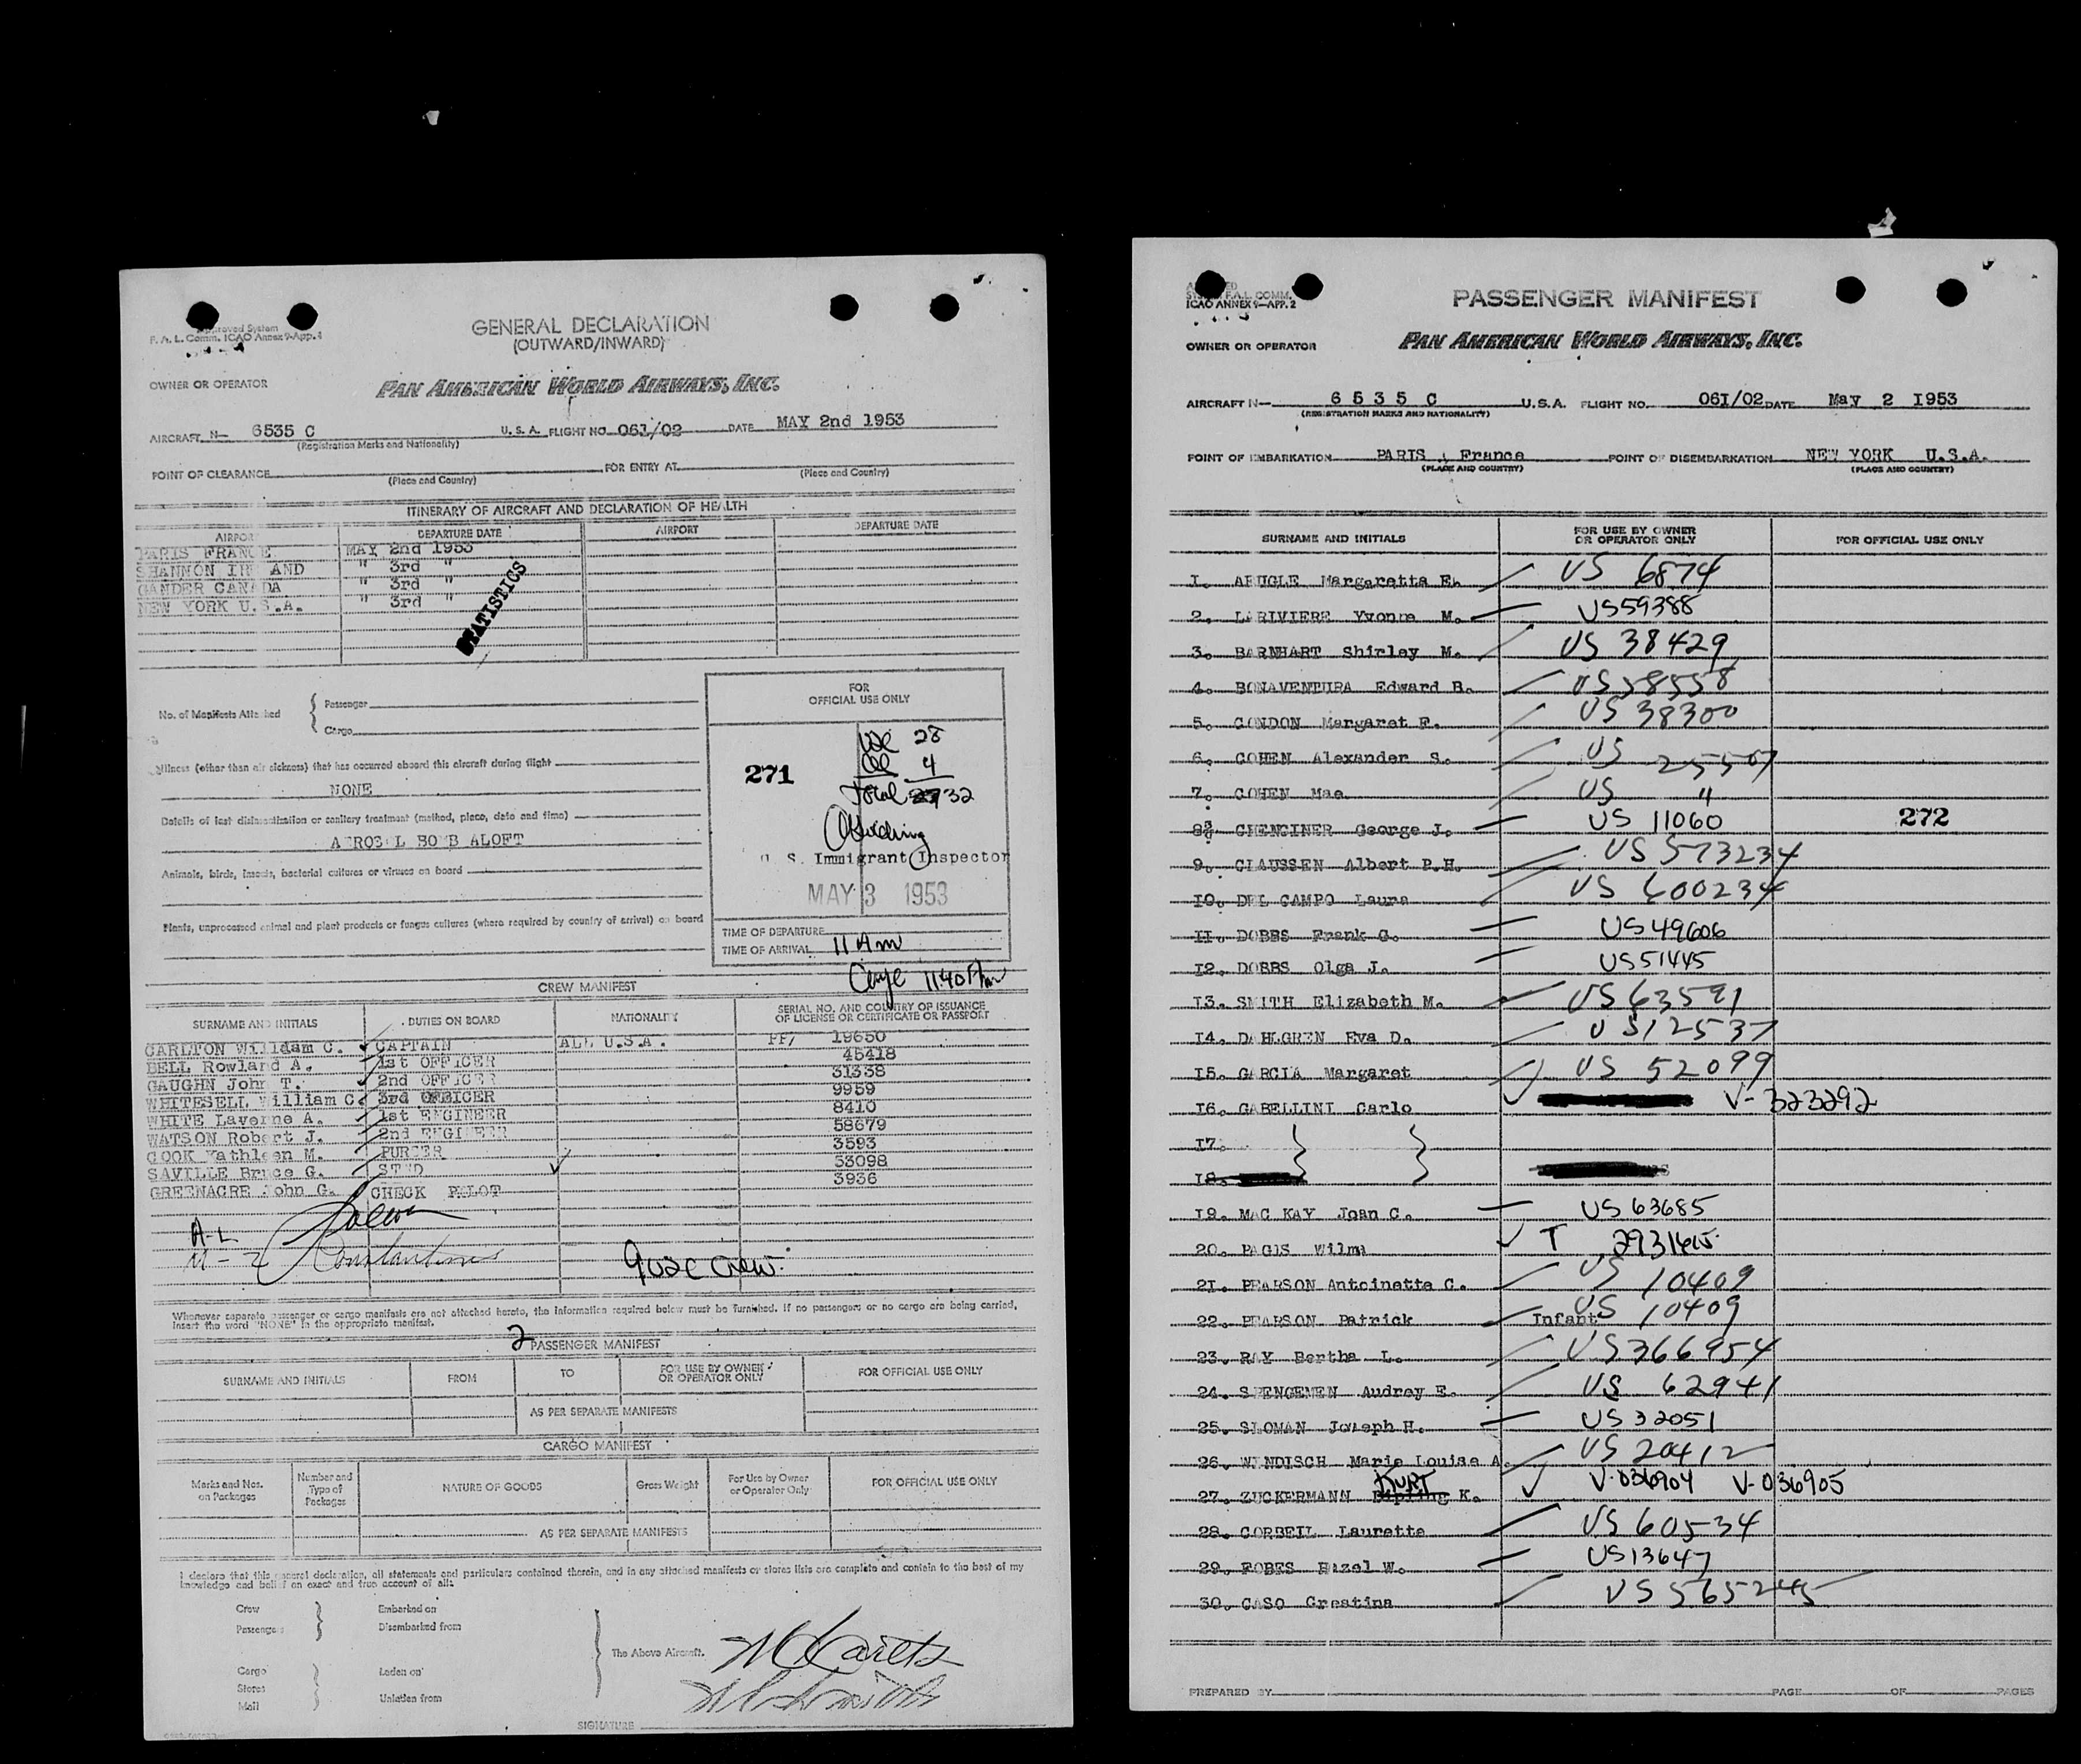 Approved System
F. A. L. Comm. ICAO Annex 9-App. 1
GENERAL DECLARATION
(OUTWARD/INWARD)
OWNER OR OPERATOR
PAN AMERICAN WORLD AIRWAYS, INC.
AIRCRAFT N— 6535 C U. S. A. FLIGHT NO. 061/02 DATE MAY 2nd 1953
(Registration Marks and Nationality)
POINT OF CLEARANCE FOR ENTRY AT
(Place and Country) (Place and Country)
ITINERARY OF AIRCRAFT AND DECLARATION OF HEALTH
AIRPORT DEPARTURE DATE AIRPORT DEPARTURE DATE
PARIS FRANCE MAY 2nd 1953
SHANNON IRELAND " 3rd "
GANDER CANADA " 3rd "
NEW YORK U.S.A. " 3rd "
STATISTICS
No. of Manifests Attached
Passenger
Cargo
Illness (other than air sickness) that has occurred aboard this aircraft during flight
NONE
Details of last disinsectization or sanitary treatment (method, place, date and time)
AEROSOL BOMB ALOFT
Animals, birds, insects, bacterial cultures or viruses on board
Plants, unprocessed animal and plant products or fungus cultures (where required by country of arrival) on board
FOR
OFFICIAL USE ONLY
271
USC 28
4
Total 32
U. S. Immigrant Inspector
MAY 3 1953
TIME OF DEPARTURE
TIME OF ARRIVAL 11 Am
CREW MANIFEST
SURNAME AND INITIALS DUTIES ON BOARD NATIONALITY SERIAL NO. AND COUNTRY OF ISSUANCE OF LICENSE OR CERTIFICATE OR PASSPORT
CARLTON William C. CAPTAIN ALL U.S.A. PP/ 19650
BELL Rowland A. 1st OFFICER 45418
GAUGHN John T. 2nd OFFICER 31338
WHITESELL William C. 3rd OFFICER 9959
WHITE Laverne A. 1st ENGINEER 8410
WATSON Robert J. 2nd ENGINEER 58679
COOK Kathleen M. PURSER 3593
SAVILLE Bruce G. STWD 33098
GREENACRE John G. CHECK PILOT 3936
A-L
M-Z
9 USC Crew
Whenever separate passenger or cargo manifests are not attached hereto, the information required below must be furnished. If no passengers or no cargo are being carried,
insert the word "NONE" in the appropriate manifest.
2
PASSENGER MANIFEST
SURNAME AND INITIALS FROM TO FOR USE BY OWNER OR OPERATOR ONLY FOR OFFICIAL USE ONLY
AS PER SEPARATE MANIFESTS
CARGO MANIFEST
Marks and Nos. on Packages Number and Type of Packages NATURE OF GOODS Gross Weight For Use by Owner or Operator Only FOR OFFICIAL USE ONLY
AS PER SEPARATE MANIFESTS
I declare that this general declaration, all statements and particulars contained therein, and in any attached manifests or stores lists are complete and contain to the best of my
knowledge and belief an exact and true account of all:
Crew Embarked on
Passengers Disembarked from
The Above Aircraft.
Cargo Laden on
Stores
Mail Unladen from
SIGNATURE
F.A.L. COMM.
ICAO ANNEX 9—APP. 2
PASSENGER MANIFEST
OWNER OR OPERATOR
PAN AMERICAN WORLD AIRWAYS, INC.
AIRCRAFT N— 6 5 3 5 C U.S.A. FLIGHT NO. 061/02 DATE May 2 1953
(REGISTRATION MARKS AND NATIONALITY)
POINT OF EMBARKATION PARIS , France POINT OF DISEMBARKATION NEW YORK U.S.A.
(PLACE AND COUNTRY) (PLACE AND COUNTRY)
SURNAME AND INITIALS FOR USE BY OWNER OR OPERATOR ONLY FOR OFFICIAL USE ONLY
1. ABUGLE Margaretta E. US 6874
2. LARIVIERE Yvonne M. US59388
3. BARNHART Shirley M. US 38429
4. BONAVENTURA Edward B. US 58558
5. CONDON Margaret F. US 38300
6. COHEN Alexander S. US 25507
7. COHEN Mae US "
8. CHENCINER George J. US 11060 272
9. CLAUSSEN Albert P.H. US 573234
10. DEL CAMPO Laura US 600234
11. DOBBS Frank G. US49606
12. DOBBS Olga J. US51445
13. SMITH Elizabeth M. US 63591
14. DAHLGREN Eva D. US12537
15. GARCIA Margaret US 52099
16. GABELLINI Carlo V-323292
17.
18.
19. MAC KAY Joan C. US 63685
20. PAGIS Wilma T
21. PEARSON Antoinette C. US 10409
22. PEARSON Patrick Infant US 10409
23. RAY Bertha L. US366954
24. SPENGEMEN Audrey E. US 62941
25. SLOMAN Joseph H. US32051
26. WINDISCH Marie Louise A. US 20412
27. ZUCKERMANN KURT K. V-036904 V-036905
28. CORBEIL Laurette US 60534
29. FOBES Hazel W. US13647
30. CASO Crestina US 565245
PREPARED BY PAGE OF PAGES